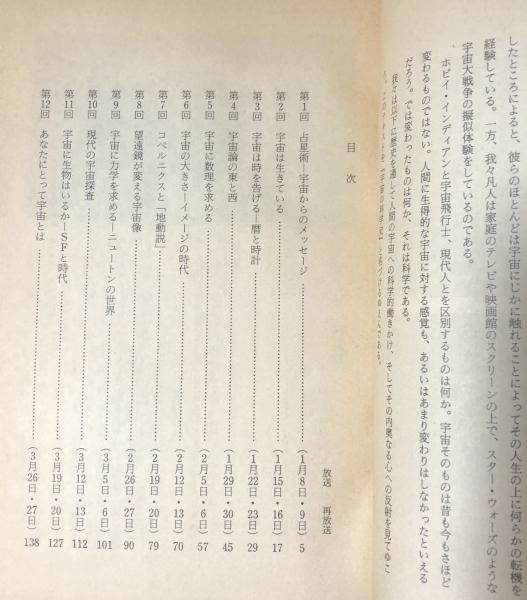 したところによると、彼らのほとんどは宇宙にじかに触れることによってその人生の上に何らかの転機を
経験している。一方、我々凡人は家庭のテレビや映画館のスクリーンの上で、スター・ウォーズのような
宇宙大戦争の擬似体験をしているのである。
ホピイ・インディアンと宇宙飛行士、現代人とを区別するものは何か。宇宙そのものは昔も今もさほど
変わるものではない。人間に生得的な宇宙に対する感覚も、あるいはあまり変わりはしなかったといえる
だろう。では変わったものは何か、それは科学である。
我々は以下に歴史を通して人間の宇宙への科学的働きかけ、そしてその内奥なる心への反射を見てゆこ
目次
放送 再放送
第1回 占星術―宇宙からのメッセージ……(1月8日・9日) 5
第2回 宇宙は生きている……(1月15日・16日) 17
第3回 宇宙は時を告げる―暦と時計……(1月22日・23日) 29
第4回 宇宙論の東と西……(1月29日・30日) 45
第5回 宇宙に数理を求める……(2月5日・6日) 57
第6回 宇宙の大きさ―イメージの時代……(2月12日・13日) 70
第7回 コペルニクスと「地動説」……(2月19日・20日) 79
第8回 望遠鏡が変える宇宙像……(2月26日・27日) 90
第9回 宇宙に力学を求める―ニュートンの世界……(3月5日・6日) 101
第10回 現代の宇宙探査……(3月12日・13日) 112
第11回 宇宙に生物はいるか―SFと時代……(3月19日・20日) 127
第12回 あなたにとって宇宙とは……(3月26日・27日) 138